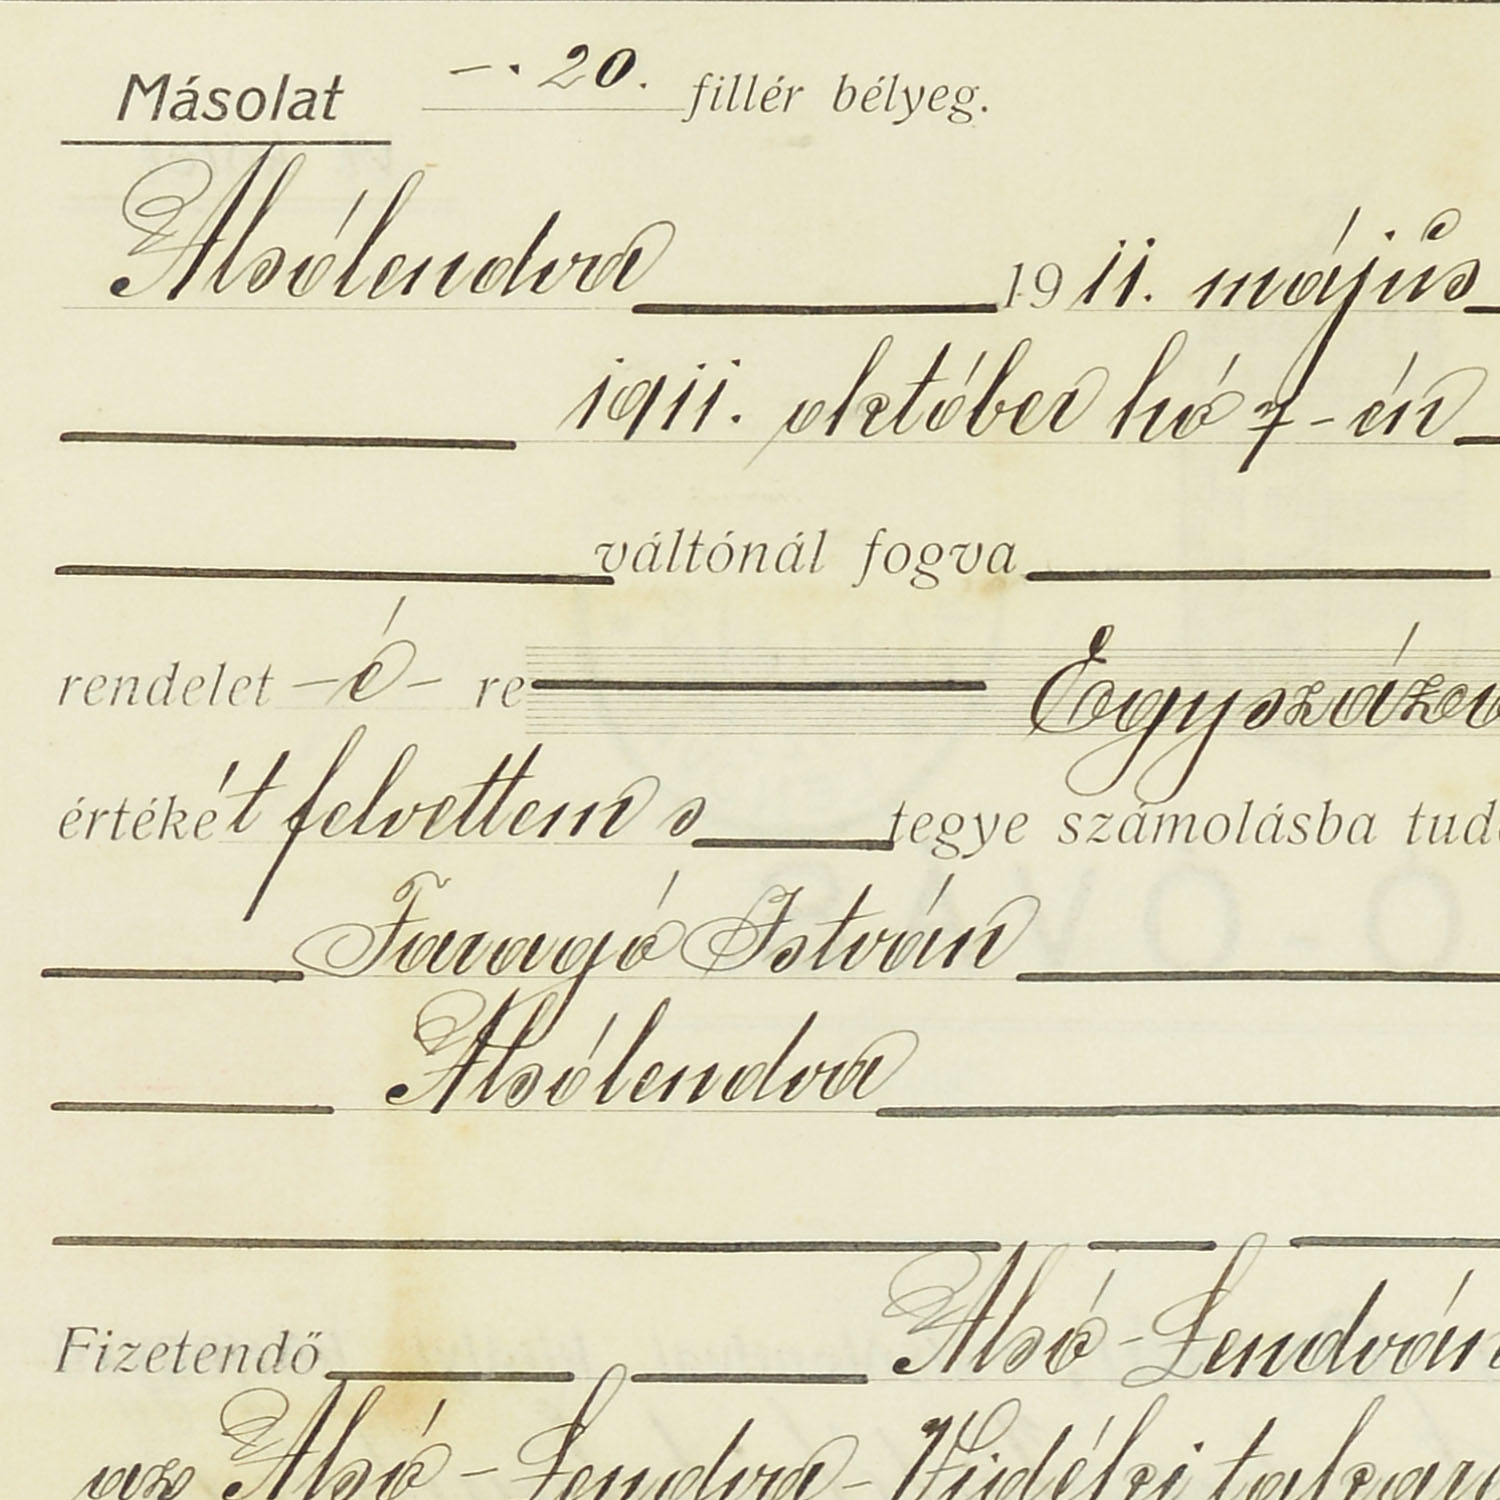 Másolat —. 20. fillér bélyeg.
Alsólendva 1911. május
1911. október hó 7-én
váltónál fogva
rendelet —é— re
értékét felvettem s tegye számolásba
Faragó István
Alsólendva
Fizetendő Alsó-Lendván
az Alsó-Lendva-Vidéki